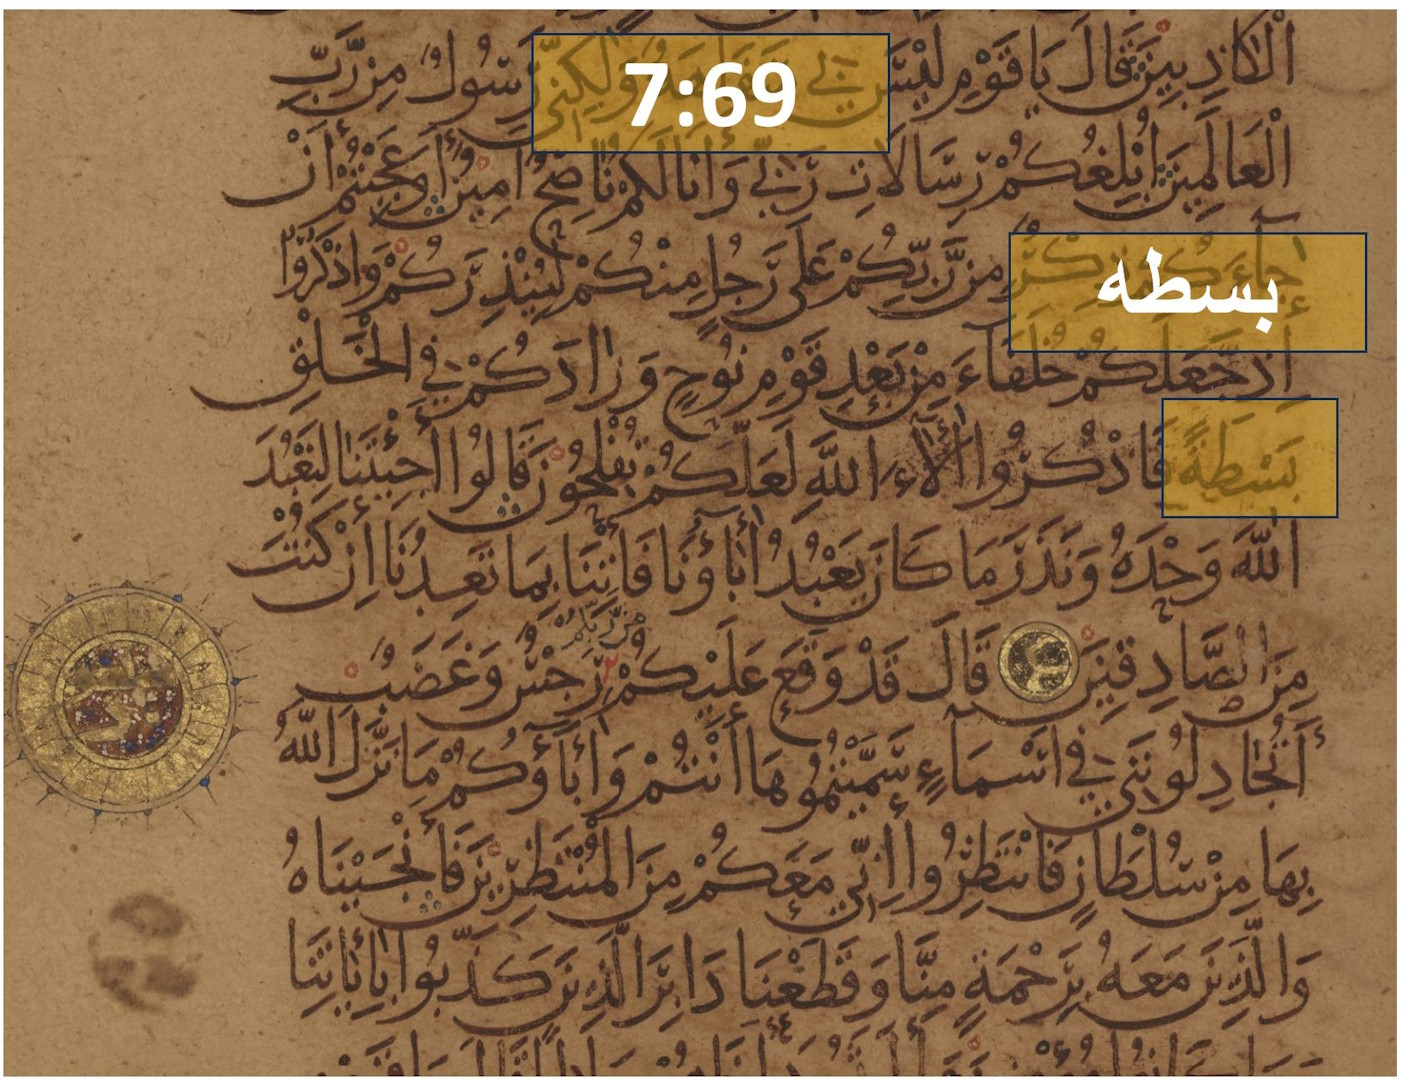 7:69
الْكَاذِبِينَ قَالَ يَا قَوْمِ لَيْسَ بِي سَفَاهَةٌ وَلَكِنِّي رَسُولٌ مِنْ رَبِّ
الْعَالَمِينَ أُبَلِّغُكُمْ رِسَالَاتِ رَبِّي وَأَنَا لَكُمْ نَاصِحٌ أَمِينٌ أَوَعَجِبْتُمْ أَنْ
بسطه
جَاءَكُمْ ذِكْرٌ مِنْ رَبِّكُمْ عَلَى رَجُلٍ مِنْكُمْ لِيُنْذِرَكُمْ وَاذْكُرُوا
إِذْ جَعَلَكُمْ خُلَفَاءَ مِنْ بَعْدِ قَوْمِ نُوحٍ وَزَادَكُمْ فِي الْخَلْقِ
بَسْطَةً فَاذْكُرُوا آلَاءَ اللَّهِ لَعَلَّكُمْ تُفْلِحُونَ قَالُوا أَجِئْتَنَا لِنَعْبُدَ
اللَّهَ وَحْدَهُ وَنَذَرَ مَا كَانَ يَعْبُدُ آبَاؤُنَا فَأْتِنَا بِمَا تَعِدُنَا إِنْ كُنْتَ
مِنْ رَبِّكُمْ
مِنَ الصَّادِقِينَ قَالَ قَدْ وَقَعَ عَلَيْكُمْ رِجْسٌ وَغَضَبٌ
أَتُجَادِلُونَنِي فِي أَسْمَاءٍ سَمَّيْتُمُوهَا أَنْتُمْ وَآبَاؤُكُمْ مَا نَزَّلَ اللَّهُ
بِهَا مِنْ سُلْطَانٍ فَانْتَظِرُوا إِنِّي مَعَكُمْ مِنَ الْمُنْتَظِرِينَ فَأَنْجَيْنَاهُ
وَالَّذِينَ مَعَهُ بِرَحْمَةٍ مِنَّا وَقَطَعْنَا دَابِرَ الَّذِينَ كَذَّبُوا بِآيَاتِنَا